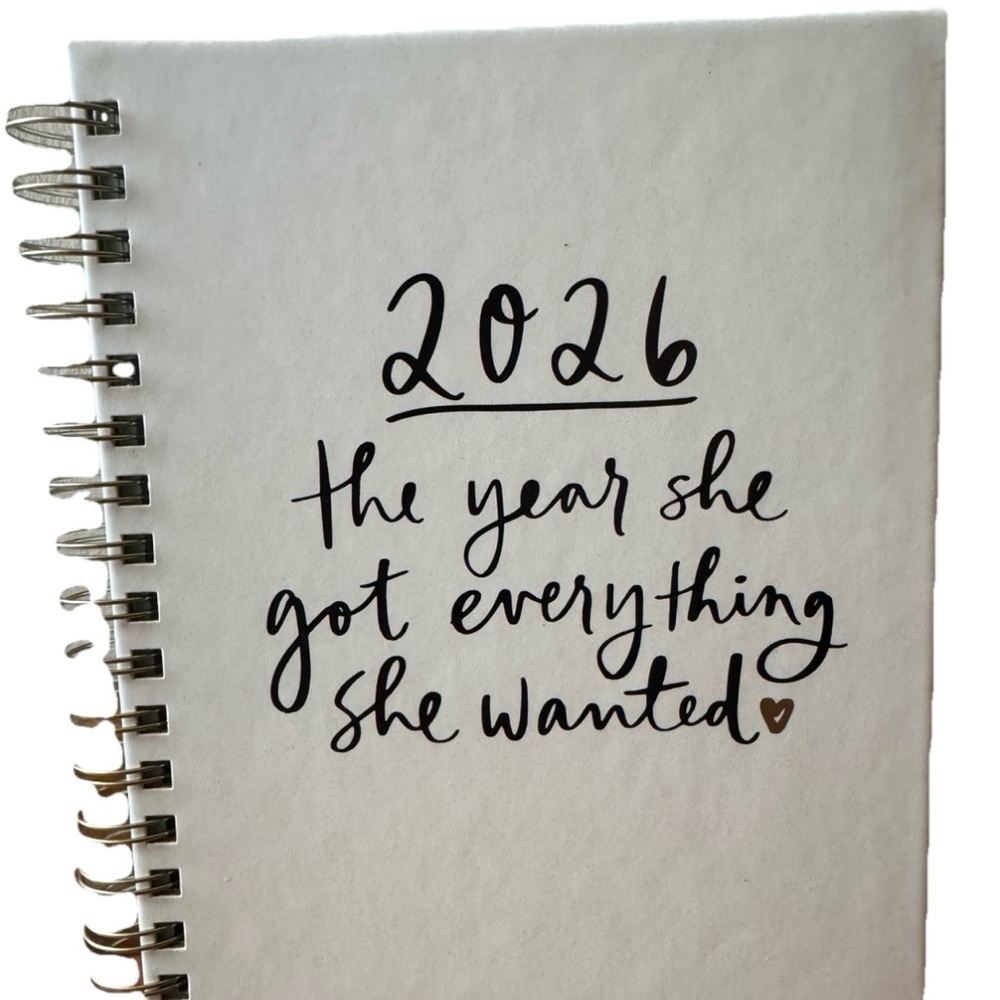 2026
the year she
got everything
she wanted